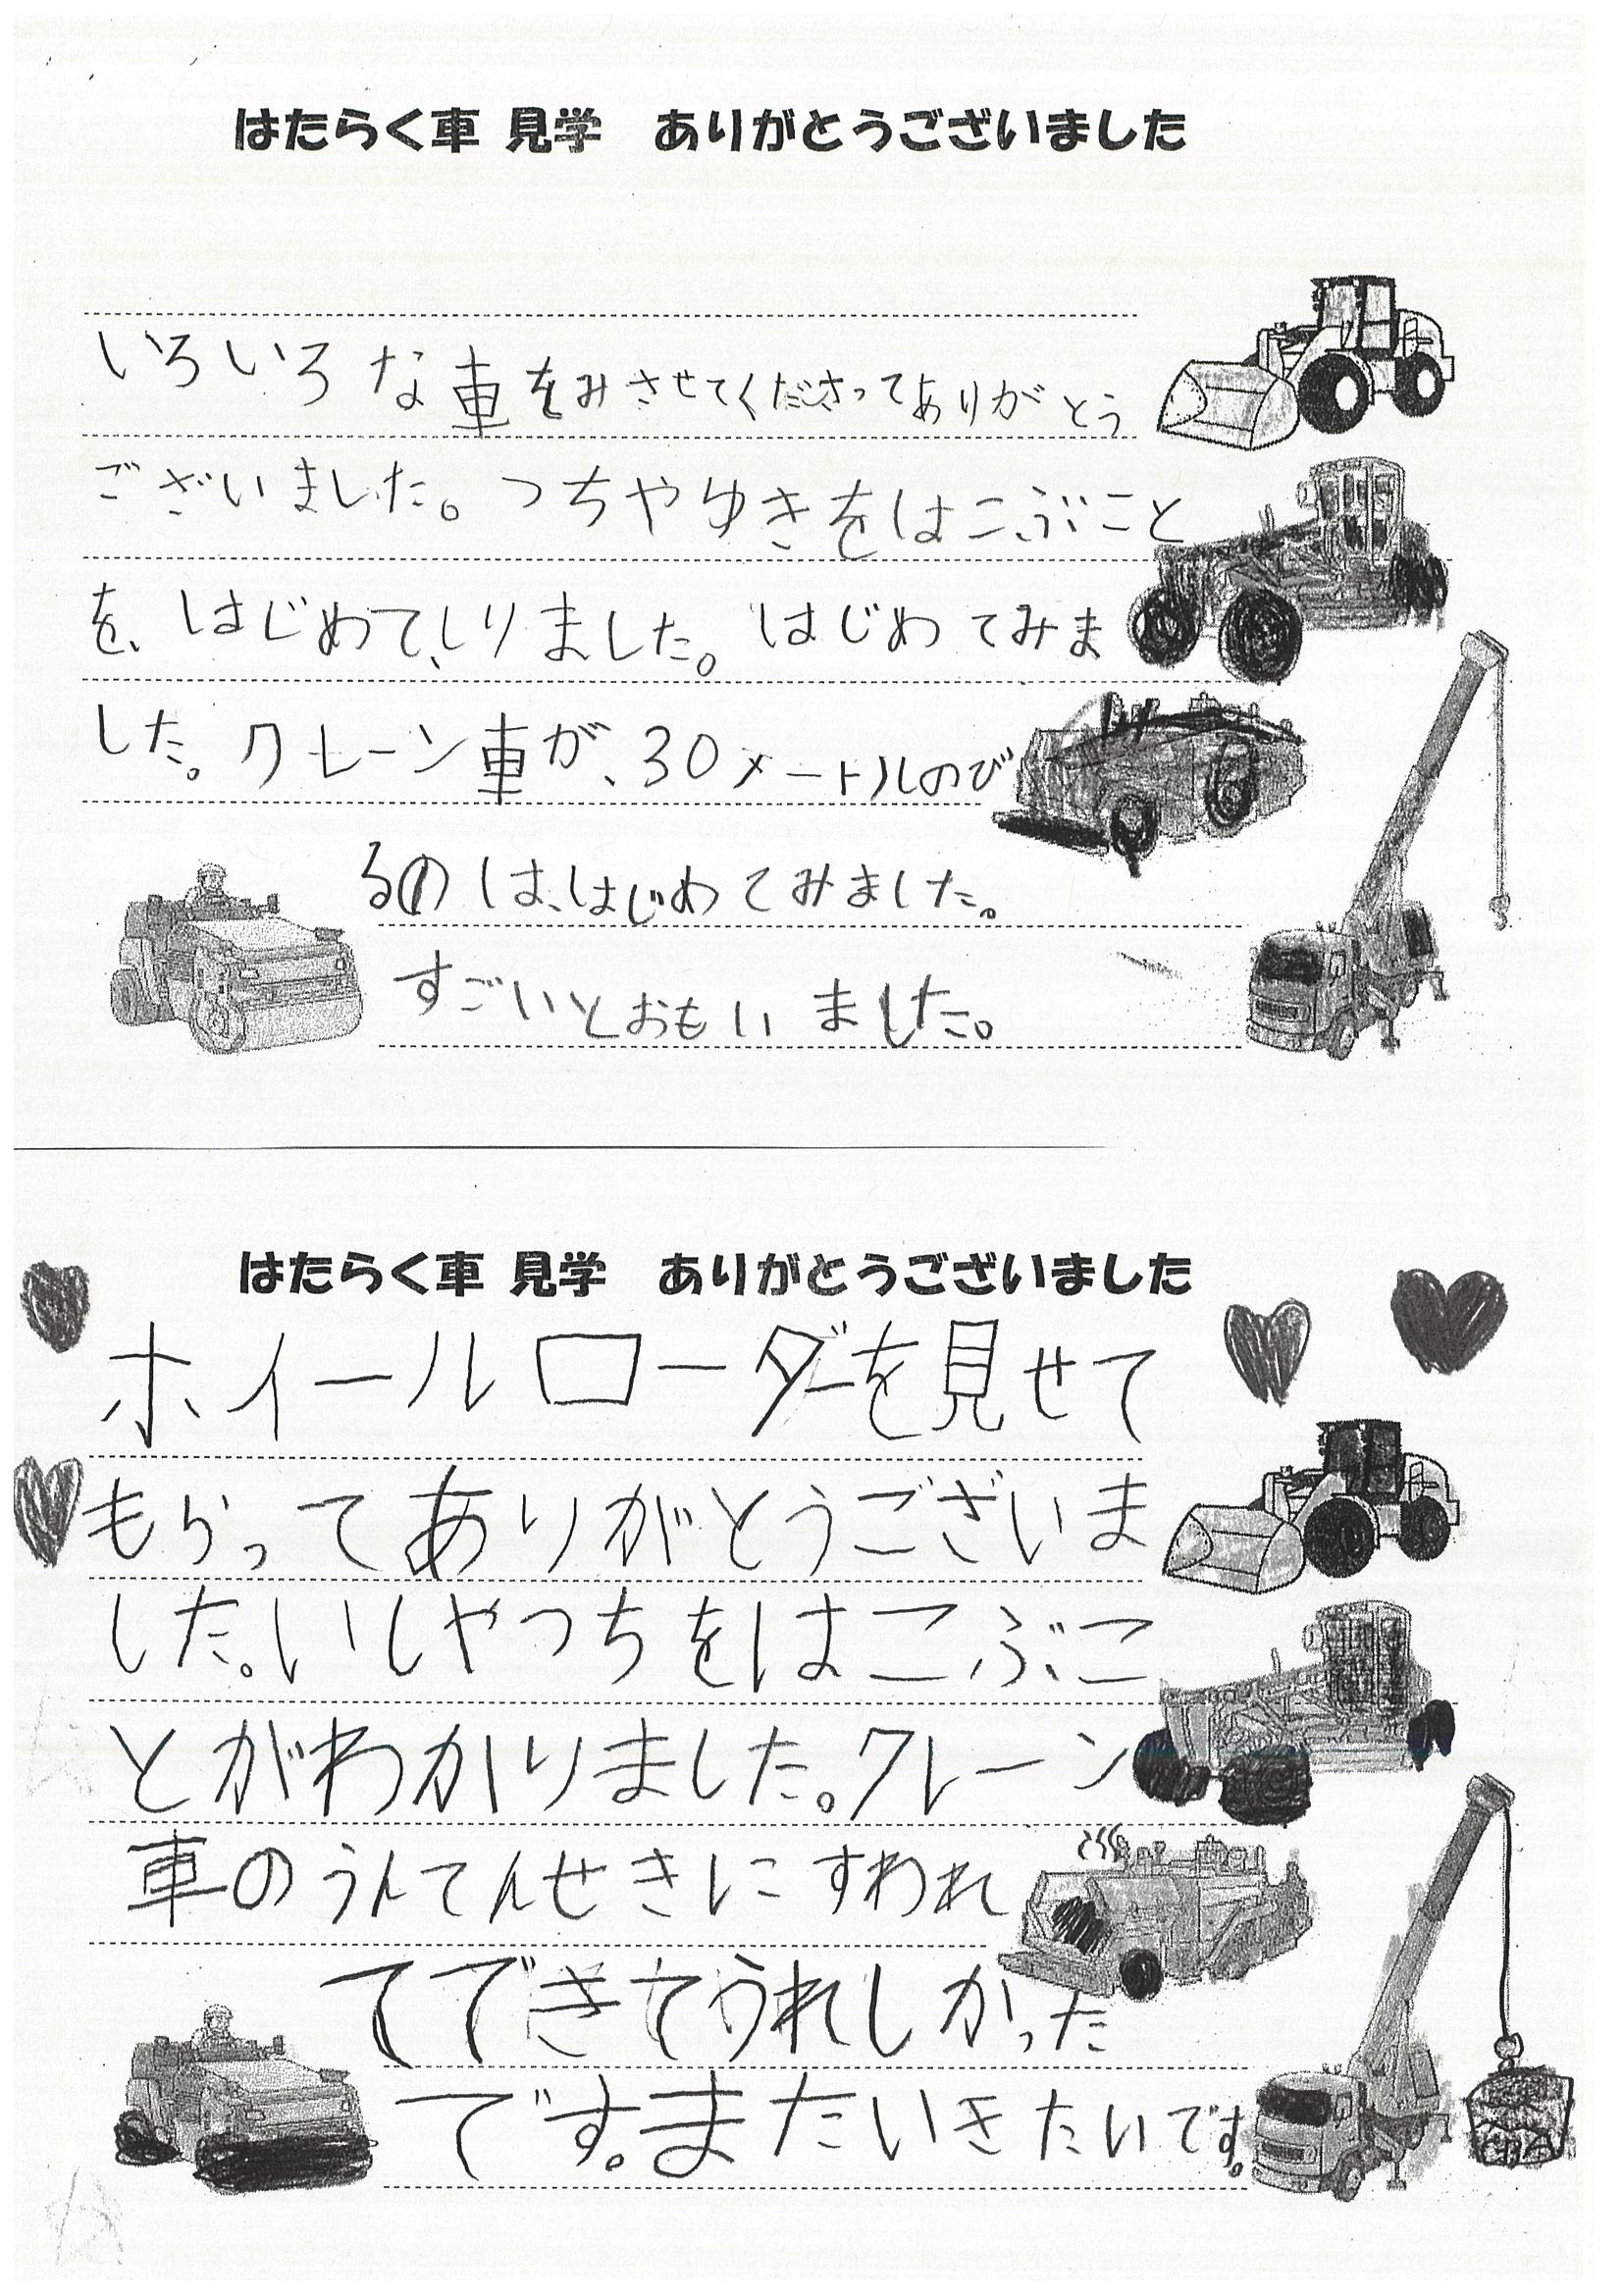 はたらく車 見学　ありがとうございました
いろいろな車をみさせてくださってありがとう
ございました。つちやゆきをはこぶこと
を、はじめて、しりました。はじめてみま
した。クレーン車が、30メートルのび
るのは、はじめてみました。
すごいとおもいました。
はたらく車 見学　ありがとうございました
ホイールローダーを見せて
もらってありがとうございま
した。いしやつちをはこぶこ
とがわかりました。クレーン
車のうんてんせきにすわれ
てできてうれしかった
です。またいきたいです。